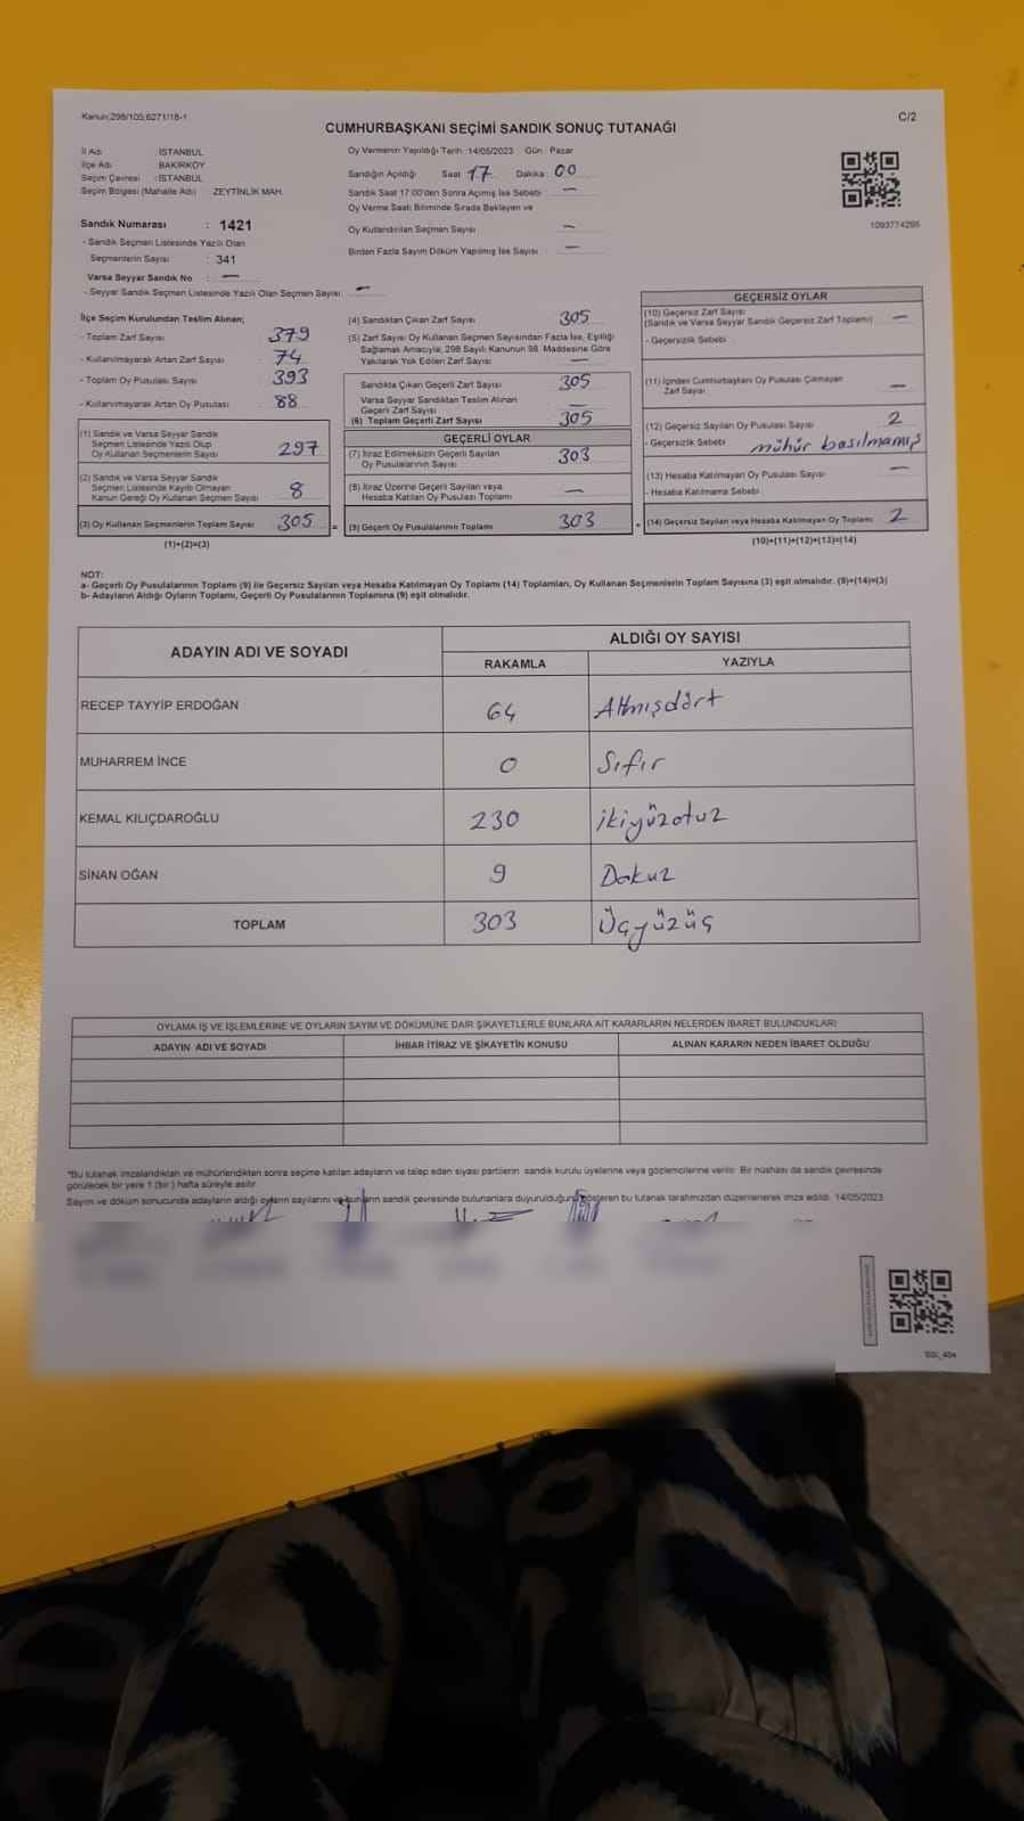 Kanun;298/105;6271/18-1
C/2
CUMHURBAŞKANI SEÇİMİ SANDIK SONUÇ TUTANAĞI
İl Adı : İSTANBUL
İlçe Adı : BAKIRKÖY
Seçim Çevresi : İSTANBUL
Seçim Bölgesi (Mahalle Adı) : ZEYTİNLİK MAH.
Sandık Numarası : 1421
- Sandık Seçmen Listesinde Yazılı Olan
Seçmenlerin Sayısı : 341
Varsa Seyyar Sandık No : —
- Seyyar Sandık Seçmen Listesinde Yazılı Olan Seçmen Sayısı —
Oy Vermenin Yapıldığı Tarih :14/05/2023 Gün : Pazar
Sandığın Açıldığı Saat 17 Dakika 00
Sandık Saat 17:00'den Sonra Açılmış İse Sebebi —
Oy Verme Saati Bitiminde Sırada Bekleyen ve
Oy Kullandırılan Seçmen Sayısı —
Birden Fazla Sayım Döküm Yapılmış İse Sayısı —
1093774295
İlçe Seçim Kurulundan Teslim Alınan;
- Toplam Zarf Sayısı 379
- Kullanılmayarak Artan Zarf Sayısı 74
- Toplam Oy Pusulası Sayısı 393
- Kullanılmayarak Artan Oy Pusulası 88
(1) Sandık ve Varsa Seyyar Sandık
Seçmen Listesinde Yazılı Olup
Oy Kullanan Seçmenlerin Sayısı 297
(2) Sandık ve Varsa Seyyar Sandık
Seçmen Listesinde Kayıtlı Olmayan
Kanun Gereği Oy Kullanan Seçmen Sayısı 8
(3) Oy Kullanan Seçmenlerin Toplam Sayısı 305
(1)+(2)=(3)
(4) Sandıktan Çıkan Zarf Sayısı 305
(5) Zarf Sayısı Oy Kullanan Seçmen Sayısından Fazla İse, Eşitliği
Sağlamak Amacıyla, 298 Sayılı Kanunun 98. Maddesine Göre
Yakılarak Yok Edilen Zarf Sayısı —
Sandıkta Çıkan Geçerli Zarf Sayısı 305
Varsa Seyyar Sandıktan Teslim Alınan
Geçerli Zarf Sayısı —
(6) Toplam Geçerli Zarf Sayısı 305
GEÇERLİ OYLAR
(7) İtiraz Edilmeksizin Geçerli Sayılan
Oy Pusulalarının Sayısı 303
(8) İtiraz Üzerine Geçerli Sayılan veya
Hesaba Katılan Oy Pusulası Toplamı —
(9) Geçerli Oy Pusulalarının Toplamı 303
GEÇERSİZ OYLAR
(10) Geçersiz Zarf Sayısı
(Sandık ve Varsa Seyyar Sandık Geçersiz Zarf Toplamı) —
- Geçersizlik Sebebi
(11) İçinden Cumhurbaşkanı Oy Pusulası Çıkmayan
Zarf Sayısı —
(12) Geçersiz Sayılan Oy Pusulası Sayısı 2
- Geçersizlik Sebebi mühür basılmamış
(13) Hesaba Katılmayan Oy Pusulası Sayısı —
- Hesaba Katılmama Sebebi
(14) Geçersiz Sayılan veya Hesaba Katılmayan Oy Toplamı 2
(10)+(11)+(12)+(13)=(14)
NOT:
a- Geçerli Oy Pusulalarının Toplamı (9) ile Geçersiz Sayılan veya Hesaba Katılmayan Oy Toplamı (14) Toplamları, Oy Kullanan Seçmenlerin Toplam Sayısına (3) eşit olmalıdır. (9)+(14)=(3)
b- Adayların Aldığı Oyların Toplamı, Geçerli Oy Pusulalarının Toplamına (9) eşit olmalıdır.
ADAYIN ADI VE SOYADI ALDIĞI OY SAYISI
RAKAMLA YAZIYLA
RECEP TAYYİP ERDOĞAN 64 Altmışdört
MUHARREM İNCE 0 Sıfır
KEMAL KILIÇDAROĞLU 230 ikiyüzotuz
SİNAN OĞAN 9 Dokuz
TOPLAM 303 Üçyüzüç
OYLAMA İŞ VE İŞLEMLERİNE VE OYLARIN SAYIM VE DÖKÜMÜNE DAİR ŞİKAYETLERLE BUNLARA AİT KARARLARIN NELERDEN İBARET BULUNDUKLARI
ADAYIN ADI VE SOYADI İHBAR İTİRAZ VE ŞİKAYETİN KONUSU ALINAN KARARIN NEDEN İBARET OLDUĞU
*Bu tutanak imzalandıktan ve mühürlendikten sonra seçime katılan adayların ve talep eden siyasi partilerin sandık kurulu üyelerine veya gözlemcilerine verilir. Bir nüshası da sandık çevresinde
görülecek bir yere 1 (bir) hafta süreyle asılır.
Sayım ve döküm sonucunda adayların aldığı oyların sayılarını ve bunların sandık çevresinde bulunanlara duyurulduğunu gösteren bu tutanak tarafımızdan düzenlenerek imza edildi. 14/05/2023